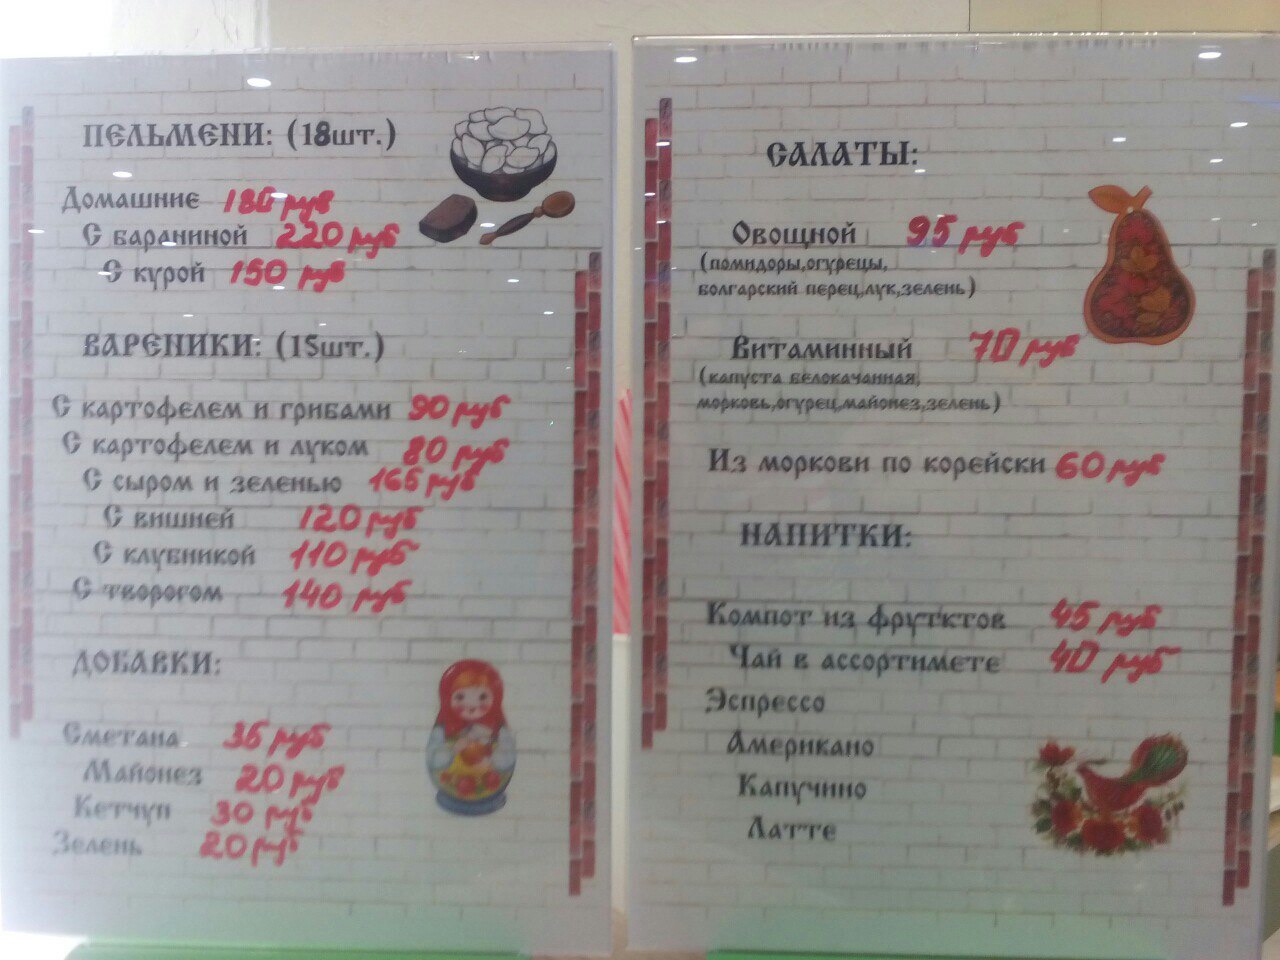 ПЕЛЬМЕНИ: (18шт.)
Домашние 180 руб
С бараниной 220 руб
С курой 150 руб
ВАРЕНИКИ: (15шт.)
С картофелем и грибами 90 руб
С картофелем и луком 80 руб
С сыром и зеленью 165 руб
С вишней 120 руб
С клубникой 110 руб
С творогом 140 руб
ДОБАВКИ:
Сметана 35 руб
Майонез 20 руб
Кетчуп 30 руб
Зелень 20 руб
САЛАТЫ:
Овощной 95 руб
(помидоры,огурецы,
болгарский перец,лук,зелень)
Витаминный 70 руб
(капуста белокачанная,
морковь,огурец,майонез,зелень)
Из моркови по корейски 60 руб
НАПИТКИ:
Компот из фрутктов 45 руб
Чай в ассортимете 40 руб
Эспрессо
Американо
Капучино
Латте